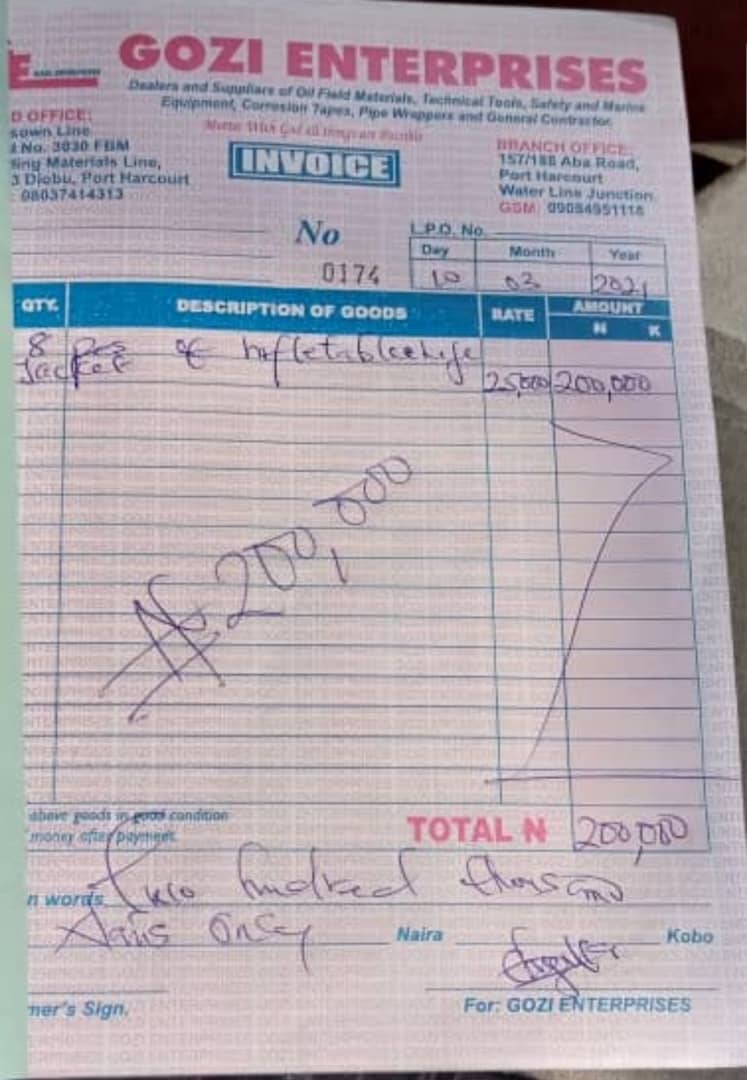 GOZI ENTERPRISES
Dealers and Suppliers of Oil Field Materials, Technical Tools, Safety and Marine
Equipment, Corrosion Tapes, Pipe Wrappers and General Contractor
D OFFICE:
sown Line
No. 3030 FBM
ing Materials Line,
3 Diobu, Port Harcourt
08037414313
INVOICE
BRANCH OFFICE:
157/188 Aba Road,
Port Harcourt
Water Line Junction
GSM: 09084951118
No
0174
L.P.O. No.
Day Month Year
10 03 2021
QTY. DESCRIPTION OF GOODS RATE AMOUNT
N K
8 Pcs of Inflatable Life
Jacket 25,000 200,000
₦200,000
above goods in good condition
money after payment
TOTAL N 200,000
n words Two hundred thousand
Naira Only Naira Kobo
mer's Sign. For: GOZI ENTERPRISES